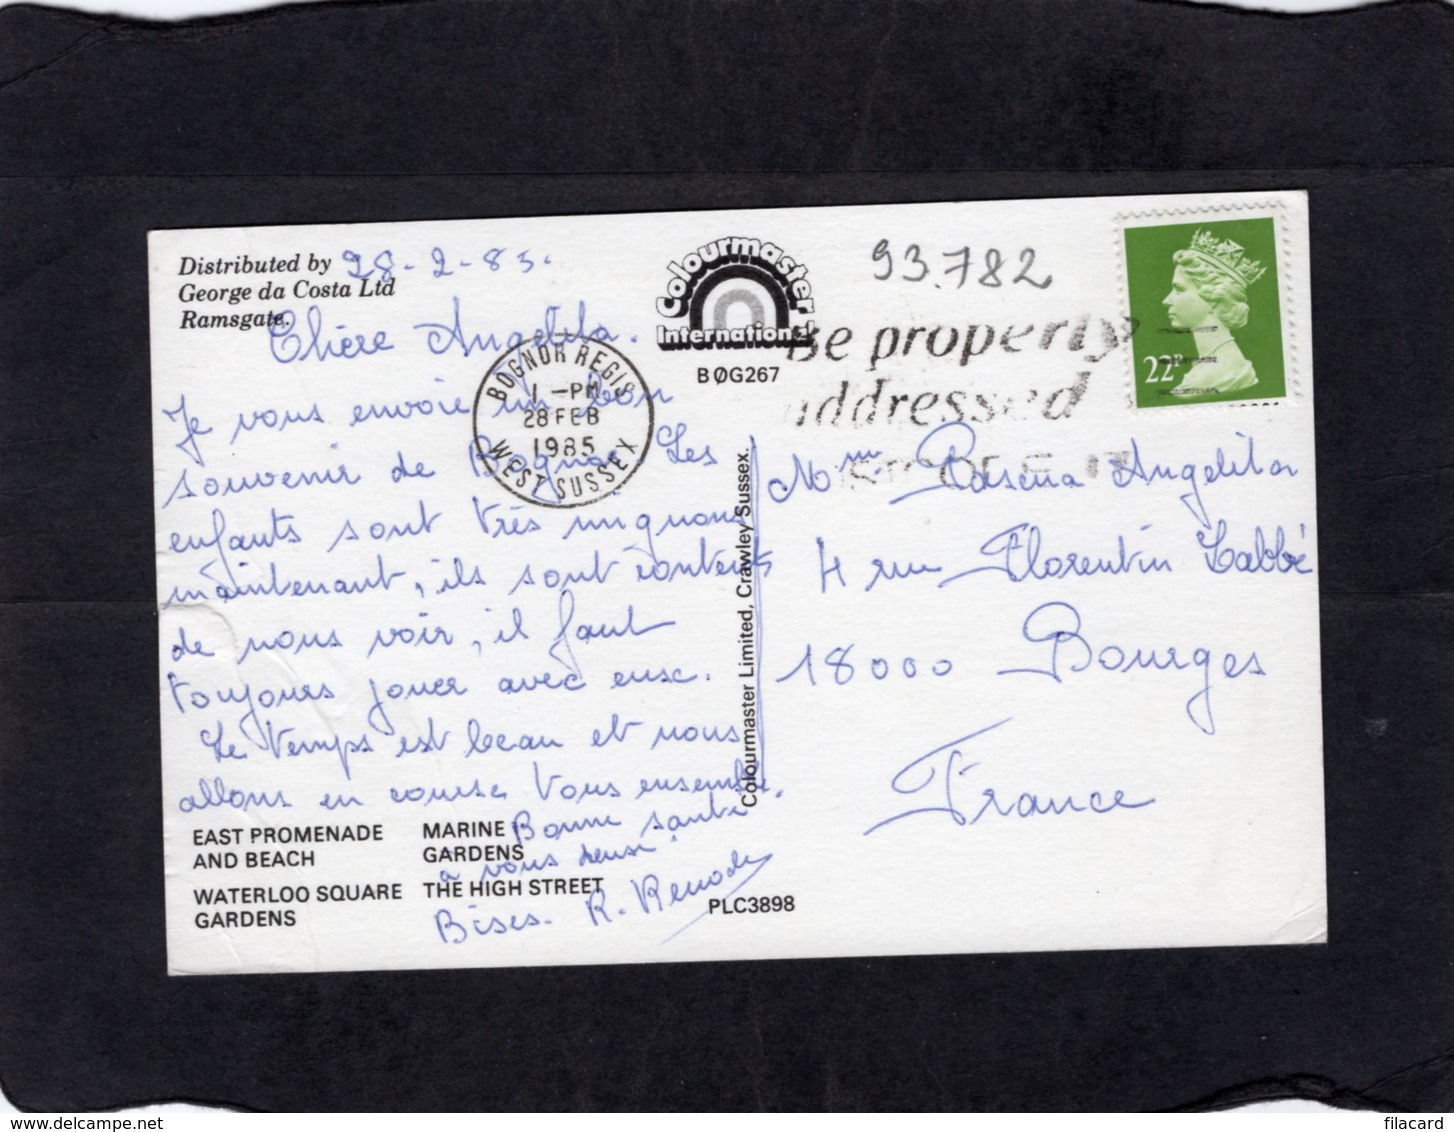 Distributed by
George da Costa Ltd
Ramsgate.
28-2-85.
Colourmaster
International
BØG267
93.782
Be properly
addressed
22P
BOGNOR REGIS
1 -PM
28 FEB
1985
WEST SUSSEX
Chère Angelita.
Je vous envoie un bon
souvenir de Bognor Les
enfants sont très mignons
maintenant, ils sont contents
de nous voir, il faut
toujours jouer avec eux.
Le temps est beau et nous
allons en courses tous ensemble.
Bonne santé
à vous deux.
Bises. R.
Mme Angelita
4 rue Florentin Labbé
18000 Bourges
France
Colourmaster Limited, Crawley Sussex.
EAST PROMENADE
AND BEACH
MARINE
GARDENS
WATERLOO SQUARE
GARDENS
THE HIGH STREET
PLC3898
http://www.delcampe.net
filacard